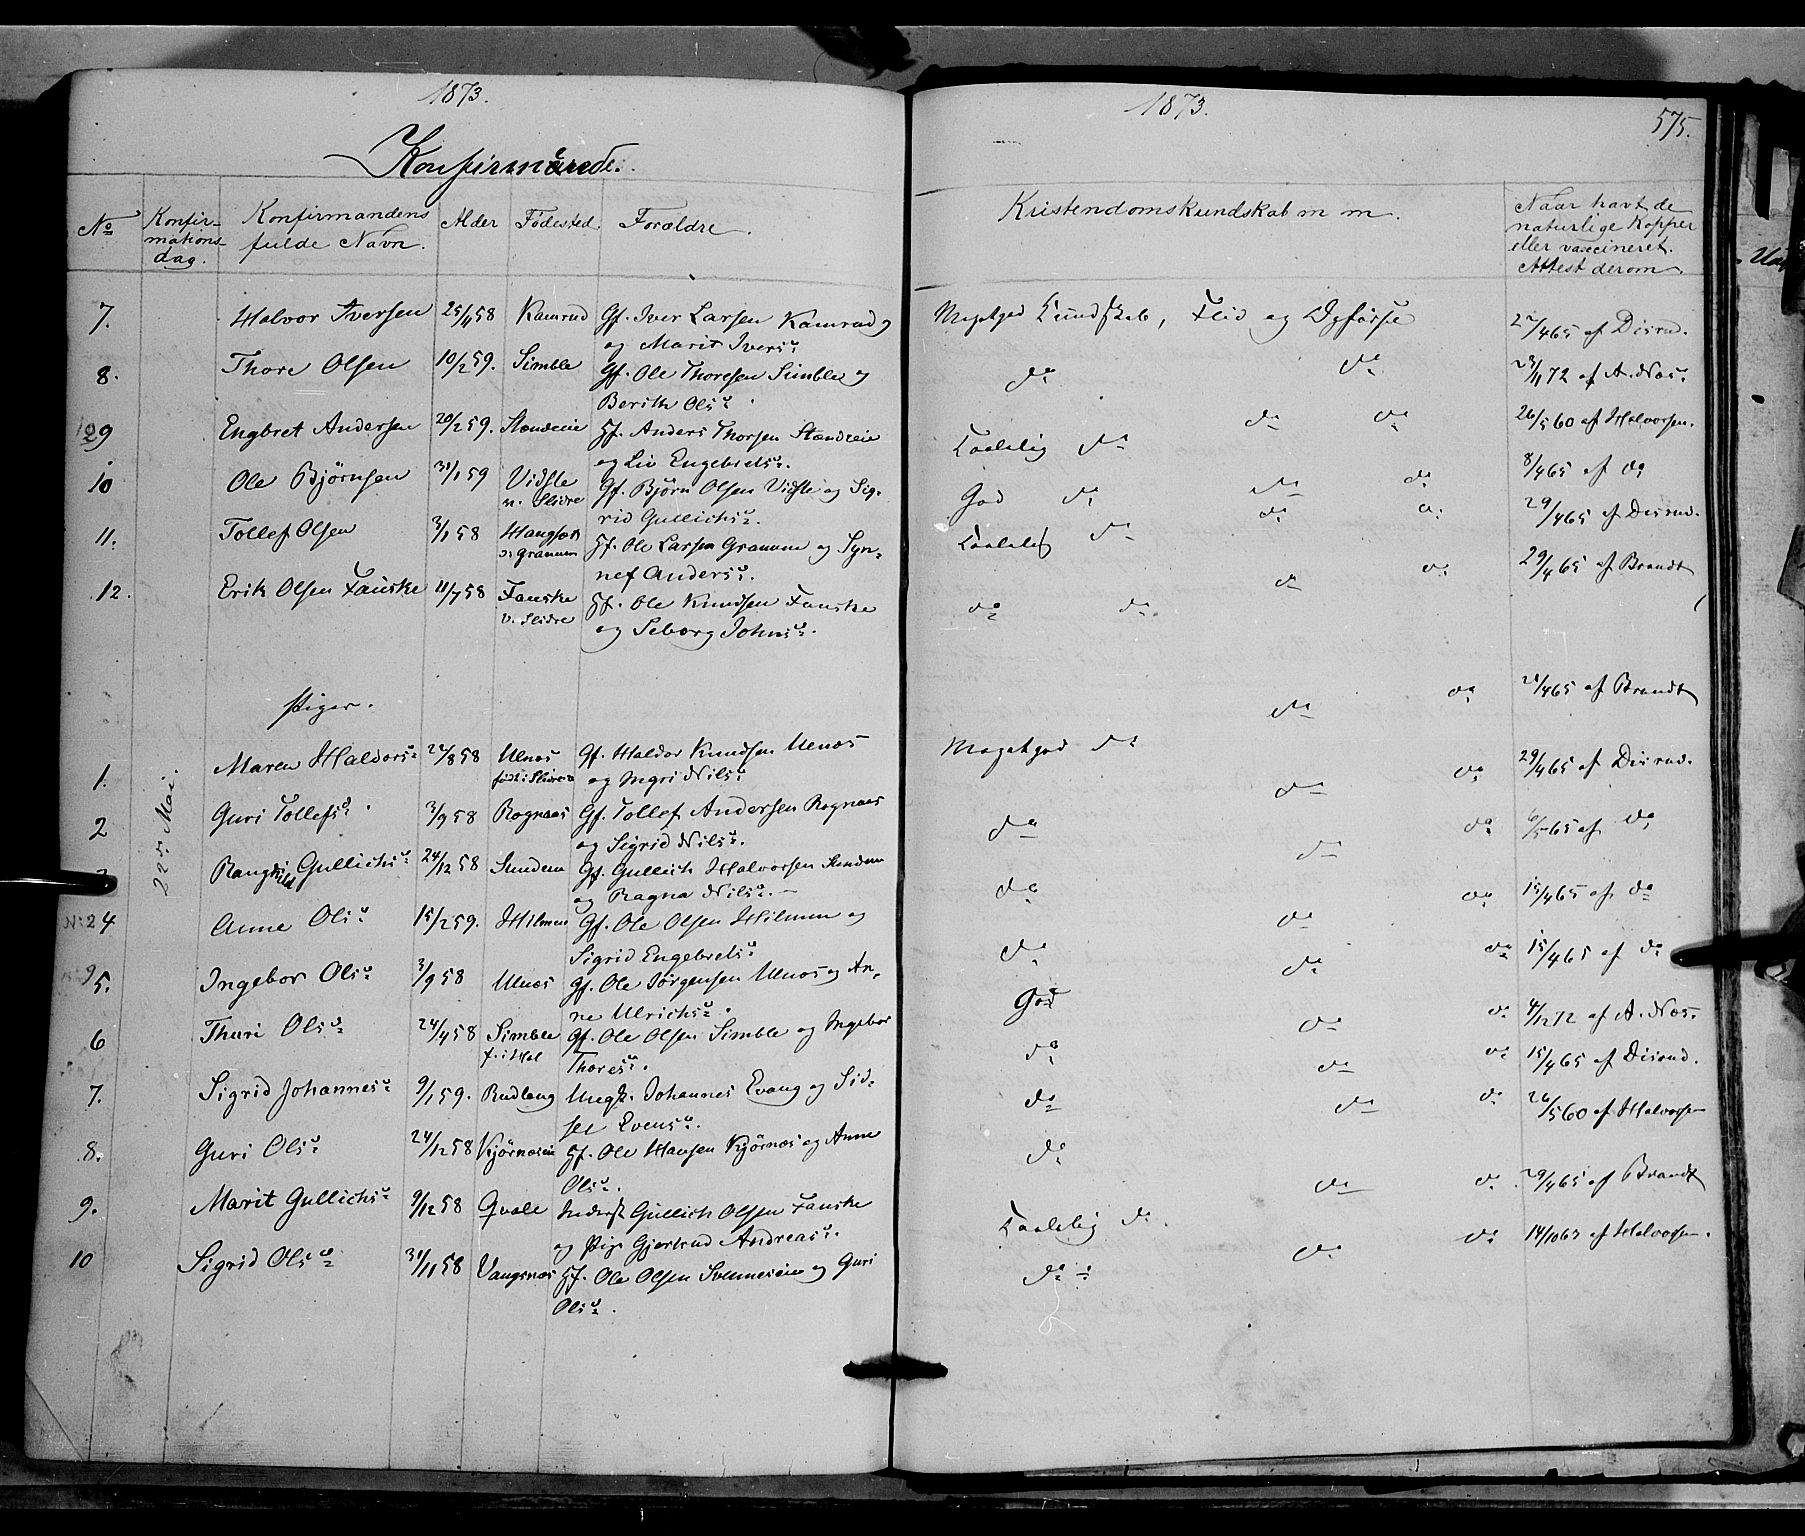 1873.
Konfirmerede.
No
Konfir-
mations-
dag.
Konfirmandens
fulde Navn.
Alder
Fødested.
Forældre.
7. Halvor Iversen 25/4 58 Kamrud Gf. Iver Larsen Kamrud
og Marit Ivers d.
8. Thore Olsen 10/2 59. Simble Gf. Ole Thoresen Simble og
Berith Ols d.
9 Engbret Andersen 20/2 59. Hf. Anders Thorsen
og Liv Engebrets d.
10 Ole Bjørnsen 31/1 59 Vidste Gf. Bjørn Olsen Vidste og Sig-
n. Slidre
rid Gullichs d.
11. Tollef Olsen 3/1 58 Hf. Ole Larsen Granum og Syn-
v. Granum
nef Anders d.
12. Erik Olsen Fauske 11/7 58 Fauske Hf. Ole Knudsen Fauske
v. Slidre
og Seborg Johns d.
Piger.
22de Mai.
1. Maren Haldors d. 22/8 58 Ulnæs Gf. Haldor Knudsen Ulnæs
og Ingri Nils d.
2 Guri Tollefs d. 3/9 58 Rognaas Gf. Tollef Andersen Rognaas
og Sigrid Nils d.
Ranghild Gullichs d. 24/12 58 Sundem Gf. Gullich Halvorsen Sundem
og Ragna Nils d.
No 2 4 Anne Ols d. 15/2 59. Hilmen Gf. Ole Olsen Hilmen og
Sigrid Engebrets d.
5. Ingebor Ols d. 3/9 58 Ulnæs Gf. Ole Jørgensen Ulnæs og An-
ne Ulrichs d.
6 Thuri Ols d. 24/4 58 Simble Gf. Ole Olsen Simble og Ingebor
f. i Hal
Thores d.
7. Sigrid Johannes d. 9/1 59. Rudlang Ungk. Johannes Evang og Sid-
sel Evens d.
8. Guri Ols d. 24/12 58 Kjørnæseie Hf. Ole Hansen Kjørnæs og Anne
Ols d.
9. Marit Gullichs d. 9/12 58 Qvale Inderst Gullich Olsen Fauske
og Pige Gjertrud Andreas d.
10 Sigrid Ols d. 31/11 58 Vangsnæs Hf. Ole Olsen Svenneseie og Guri
Ols d.
1873.
575.
Kristendomskundskab m m.
Naar havt de
naturlige Kopper
eller vaccineret.
Attest derom
Megetgod Kundskab, Flid og Opførsel 27/4 65 af Disrud.
do do 23/11 72 af A. Næs.
Taalelig do do do 26/5 60 af Halvorsen.
God do do do 8/4 65 af do
Taalelig do do do 29/4 65 af Disrud.
do do do do 29/4 65 af Brandt
Megetgod do do do 21/4 65 af Brandt
do do do 29/4 65 af Disrud.
do do do 6/5 65 af do
do do do 15/4 65 af do
God do do 15/4 65 af do
do do do 4/12 72 af A. Næs.
do do do 15/4 65 af Disrud.
do do do 26/5 60 af Halvorsen
Taalelig do. do do. 29/4 65 af Brandt
do do do 14/10 67 af Halvorsen.